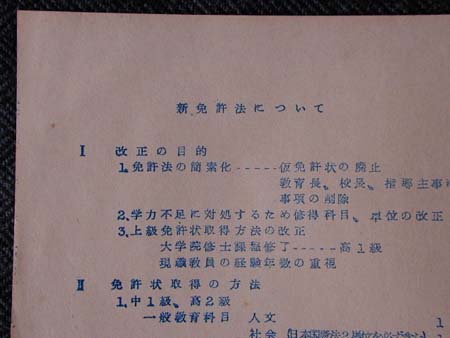 新免許法について
Ⅰ 改正の目的
1.免許法の簡素化-----仮免許状の廃止
教育長、校長、指導主事
事項の削除
2.学力不足に対処するため修得科目、単位の改正
3.上級免許状取得方法の改正
大学院修士課程修了-----高1級
現職教員の経験年数の重視
Ⅱ 免許状取得の方法
1.中1級、高2級
一般教育科目 人文 1
社会